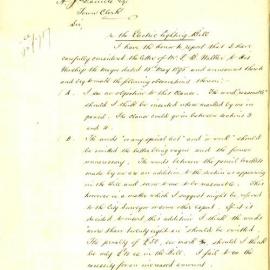 Town Clerk
Sir,
re the Electric Lighting Bill
I have the honor to report that I have
carefully considered the letter of Mr. to His
Worship the Mayor dated and annexed thereto
and beg to make the following observations thereon:
A. I see no objection to this Clause. The word "reasonable"
should I think be inserted where marked by me in
pencil. The Clause could go in between sections 3
and 4.
B. The words "any special act" and "or work" should
be omitted the latter being vague and the former
unnecessary. The words between the pencil brackets
made by me are an addition to the section as appearing
in the Bill and seem to me to be reasonable. This
however is a matter which I suggest might be referred
to the City Surveyor or some other expert. If it is
decided to insert this addition I think the words
"more than twenty eight" should be omitted.
The penalty of £50, we mark should I think
be only £10 as in the Bill. I fail to see the
necessity for an increased amount.